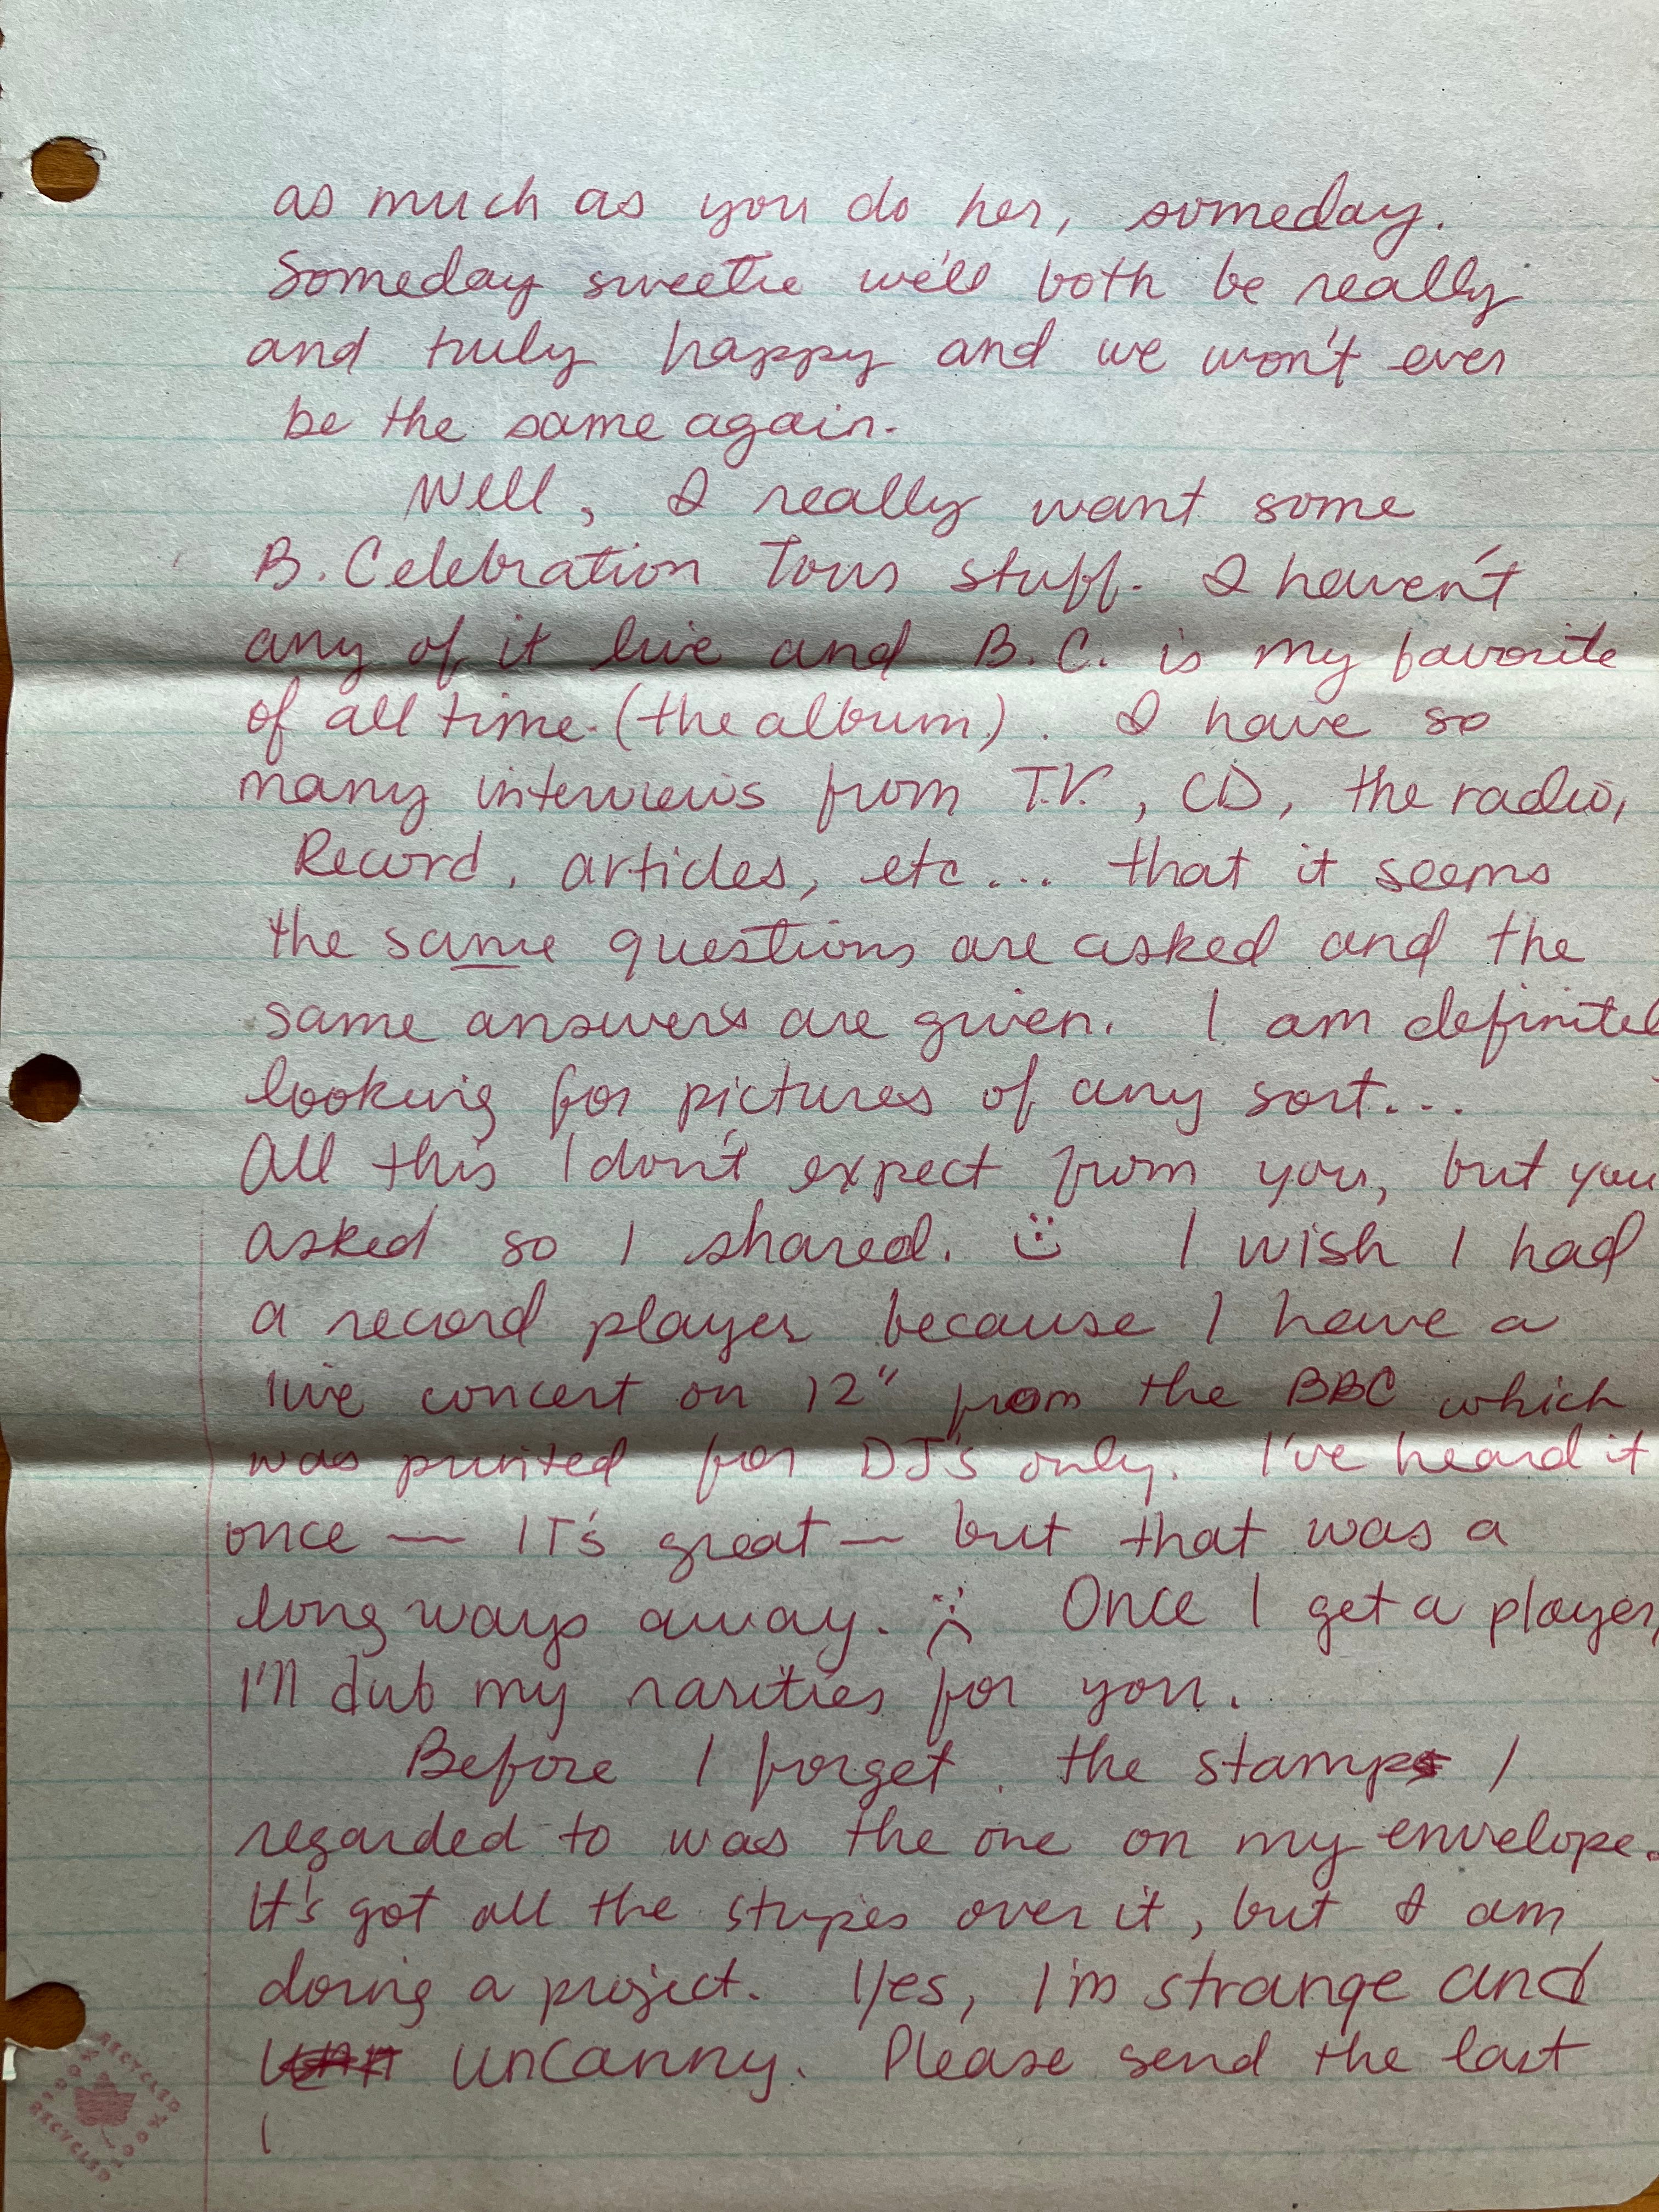 as much as you do her, someday.
Someday sweetie we'll both be really
and truly happy and we won't ever
be the same again.
Well, I really want some
B. Celebration Tour stuff. I haven't
any of it live and B.C. is my favorite
of all time (the album). I have so
many interviews from T.V., CD, the radio,
Record, articles, etc... that it seems
the same questions are asked and the
same answers are given. I am definitel
looking for pictures of any sort...
All this I don't expect from you, but you
asked so I shared. I wish I had
a record player because I have a
live concert on 12" from the BBC which
was printed for DJ's only. I've heard it
once — IT's great — but that was a
long ways away. Once I get a player,
I'll dub my rarities for you.
Before I forget. the stamp I
regarded to was the one on my envelope.
It's got all the stripes over it, but I am
doing a project. Yes, I'm strange and
uncanny. Please send the last
RECYCLED
100%
RECYCLED
100%